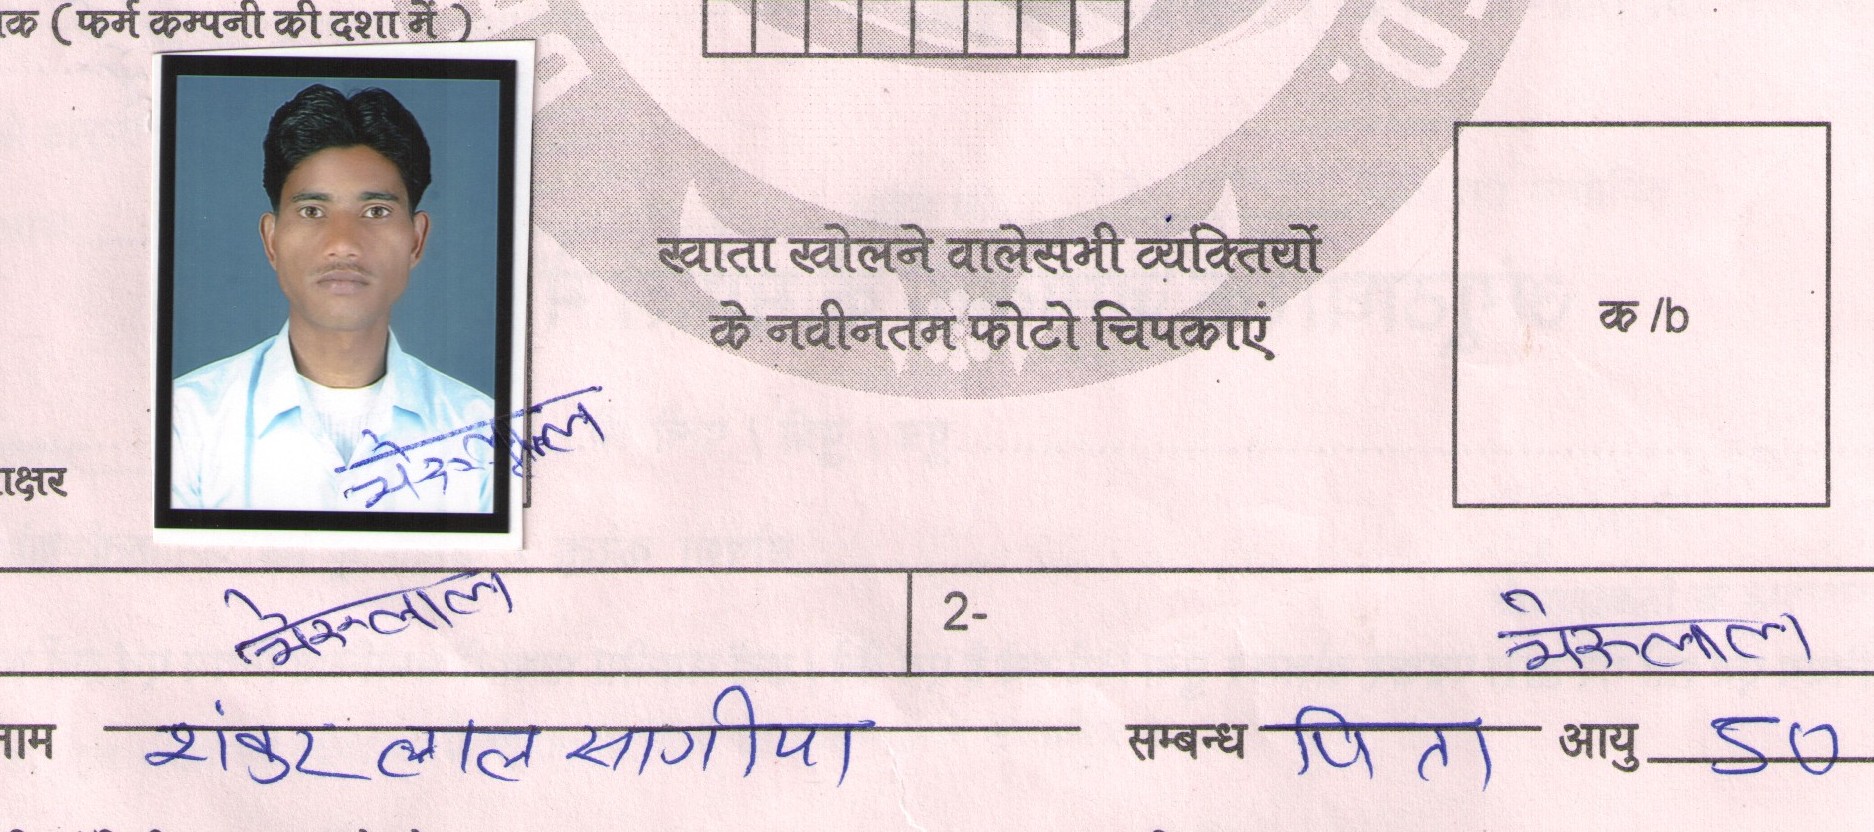 क ( फर्म कम्पनी की दशा में )
खाता खोलने वालेसभी व्यक्तियों
के नवीनतम फोटो चिपकाएं
क /b
भैरूलाल
क्षर
भैरूलाल
2-
भैरूलाल
नाम शंकर लाल सागीया सम्बन्ध पिता आयु 50